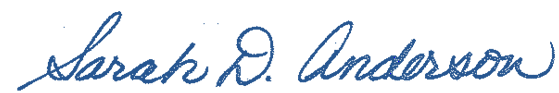 Sarah D. Anderson